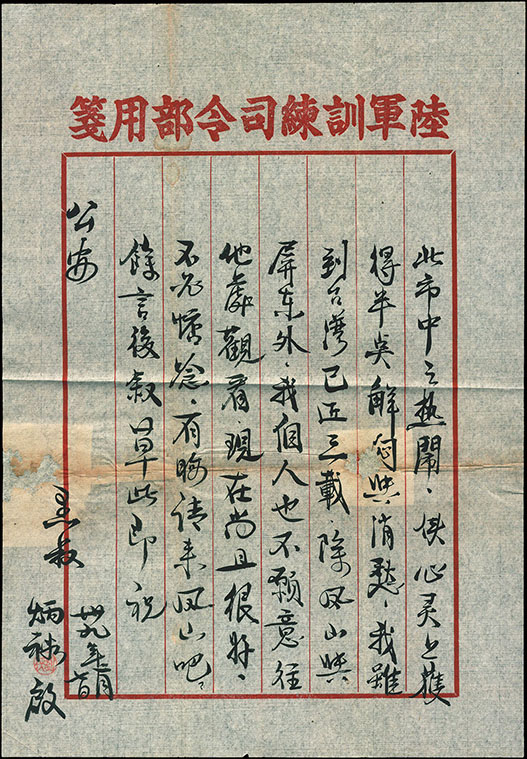 陸軍訓練司令部用箋
此市中之熱鬧，使心灵上獲
得半吳解闷與消愁，我雖
到台灣已近三載，除凤山與
屏东外，我個人也不願意往
他處觀看現在尚且很好，
不必惦念，有暇請来凤山吧，
餘言後叙草此即祝
公安
炳 啟
卅九年 月 日